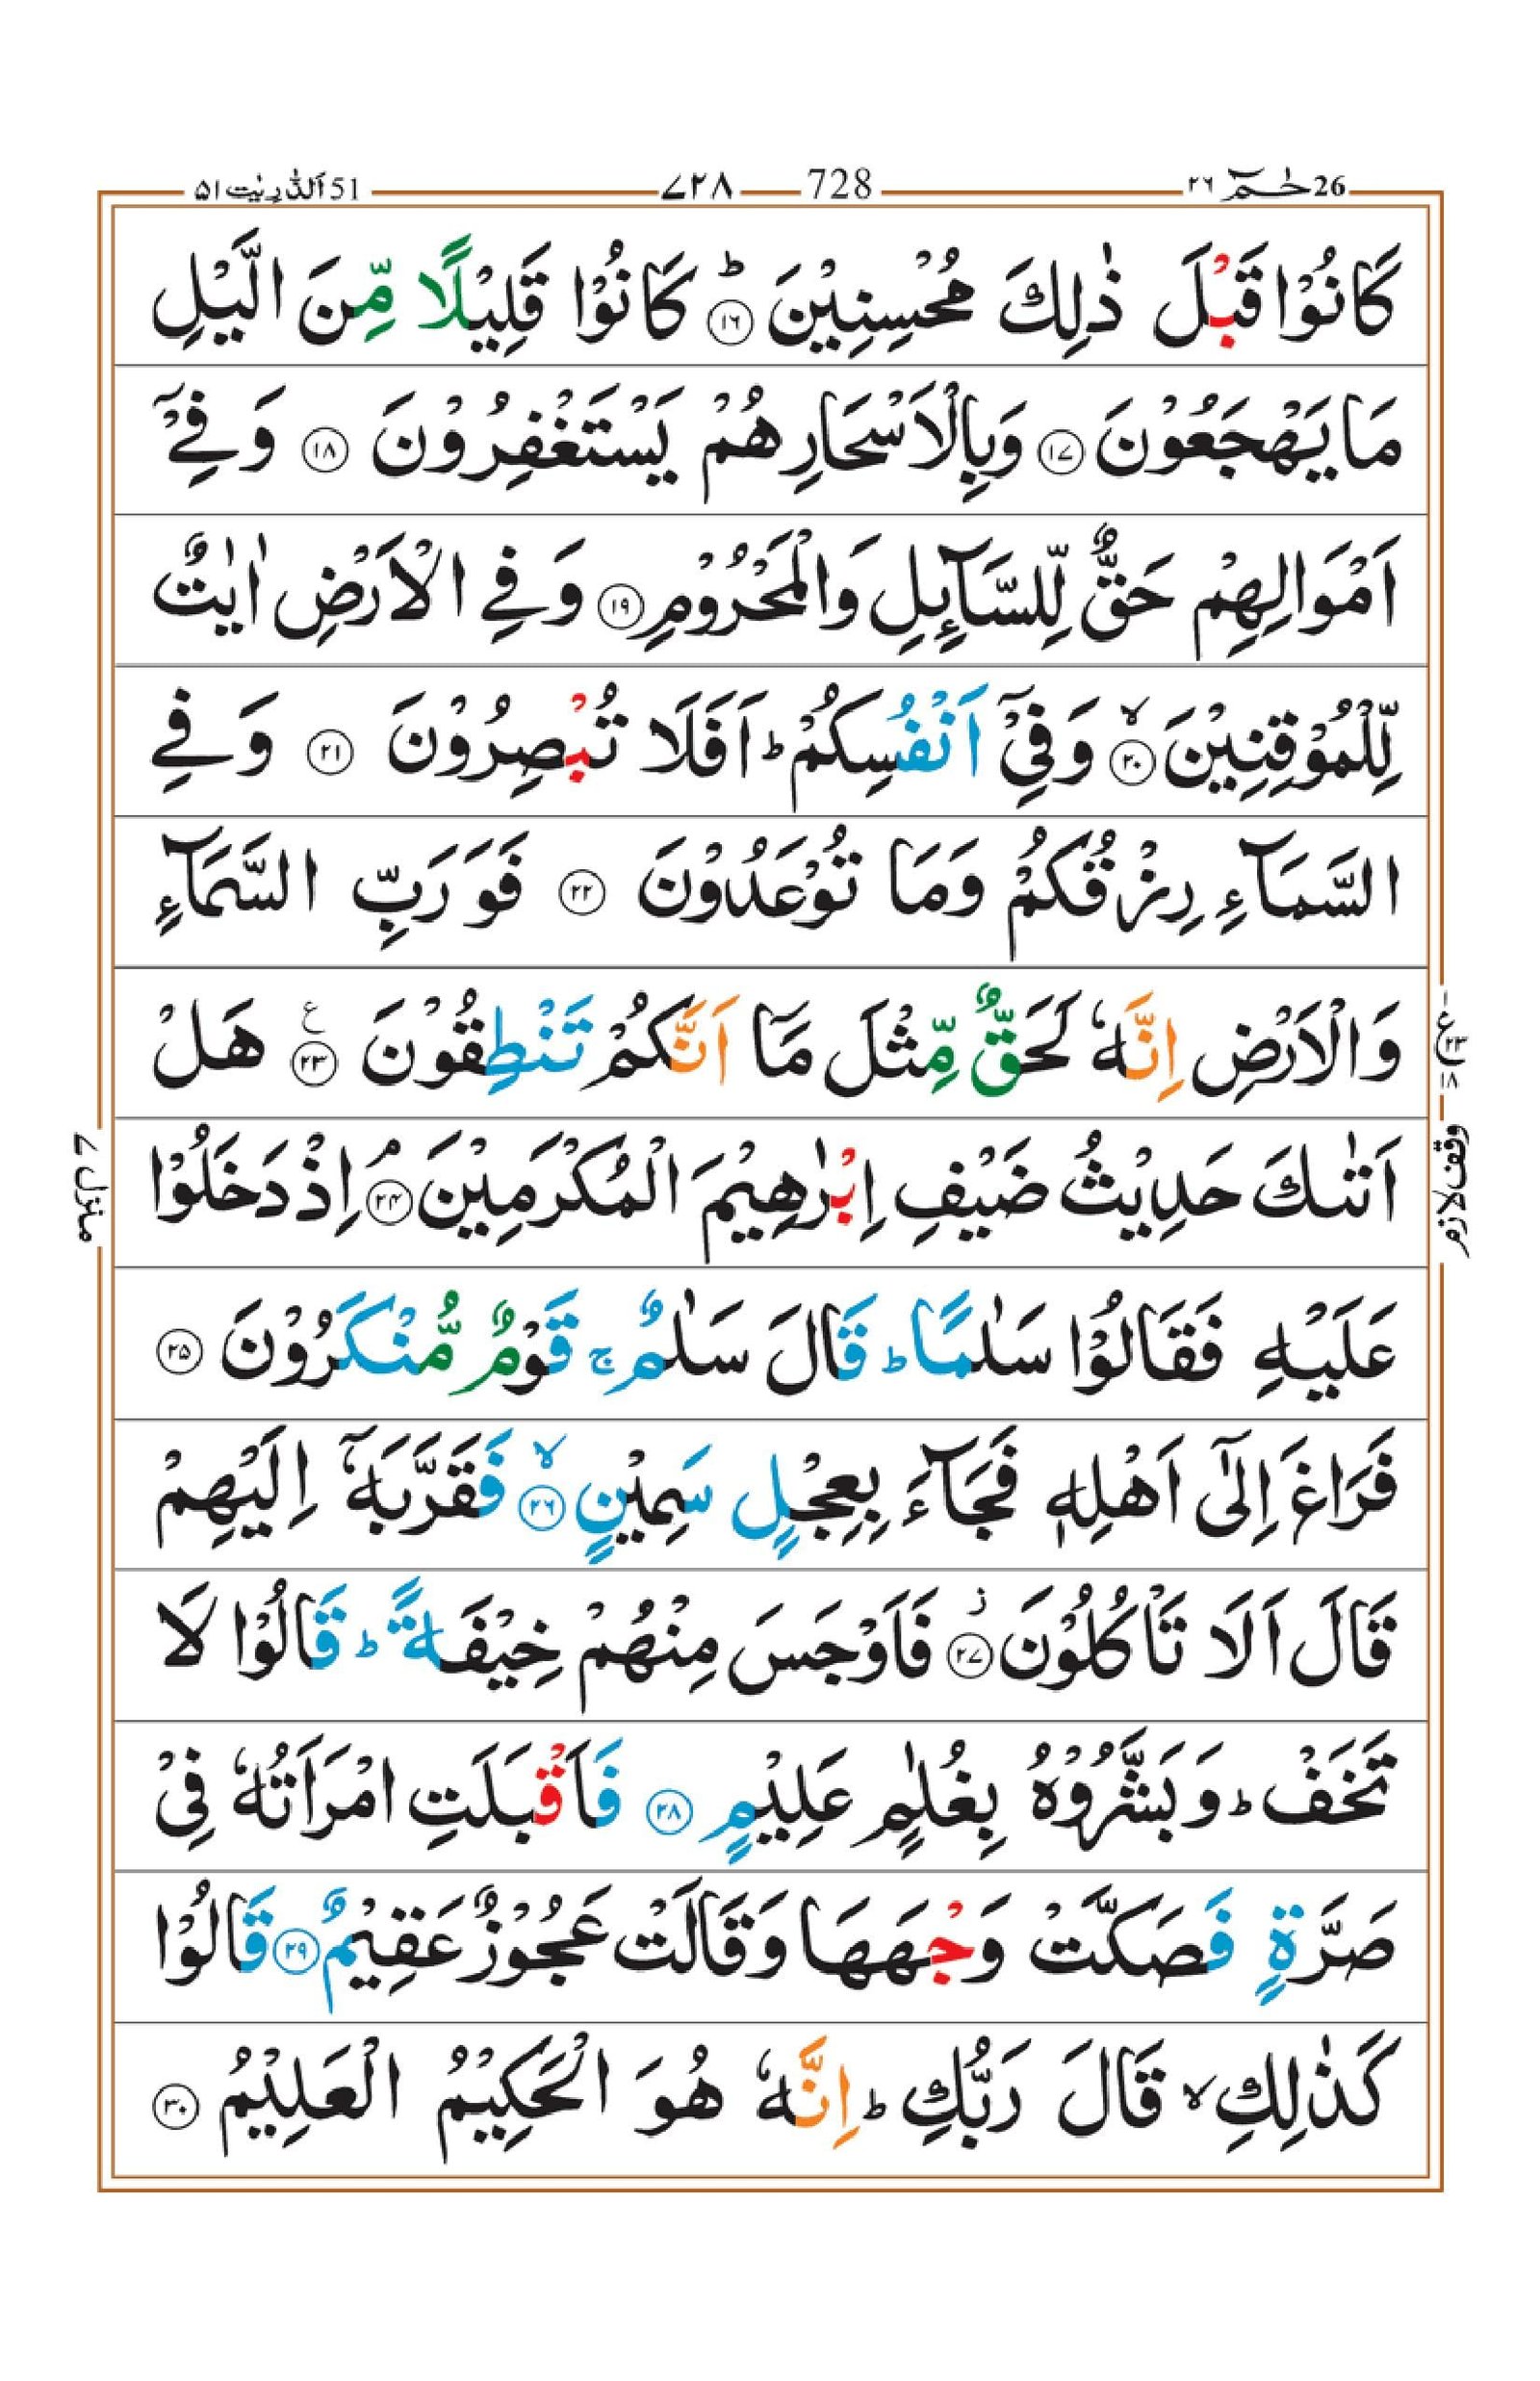 حٰمٓ 26 ٢٦
728 ٧٢٨
اَلذّٰرِيٰت 51 ٥١
كَانُوْا قَبْلَ ذٰلِكَ مُحْسِنِيْنَ ؕ ﴿١٦﴾ كَانُوْا قَلِيْلًا مِّنَ الَّيْلِ
مَا يَهْجَعُوْنَ ﴿١٧﴾ وَبِالْاَسْحَارِ هُمْ يَسْتَغْفِرُوْنَ ﴿١٨﴾ وَفِیْۤ
اَمْوَالِهِمْ حَقٌّ لِّلسَّآىِٕلِ وَالْمَحْرُوْمِ ﴿١٩﴾ وَفِی الْاَرْضِ اٰيٰتٌ
لِّلْمُوْقِنِيْنَ ۙ ﴿٢٠﴾ وَفِیْۤ اَنْفُسِكُمْ ؕ اَفَلَا تُبْصِرُوْنَ ﴿٢١﴾ وَفِی
السَّمَآءِ رِزْقُكُمْ وَمَا تُوْعَدُوْنَ ﴿٢٢﴾ فَوَرَبِّ السَّمَآءِ
وَالْاَرْضِ اِنَّهٗ لَحَقٌّ مِّثْلَ مَاۤ اَنَّكُمْ تَنْطِقُوْنَ ﴿٢٣﴾ ع هَلْ
ع ٢٣ ١٨
اَتٰىكَ حَدِيْثُ ضَيْفِ اِبْرٰهِيْمَ الْمُكْرَمِيْنَ ۘ ﴿٢٤﴾ اِذْ دَخَلُوْا
وقف لازم
منزل ٧
عَلَيْهِ فَقَالُوْا سَلٰمًا ؕ قَالَ سَلٰمٌ ۚ قَوْمٌ مُّنْكَرُوْنَ ﴿٢٥﴾
فَرَاغَ اِلٰۤى اَهْلِهٖ فَجَآءَ بِعِجْلٍ سَمِيْنٍ ۙ ﴿٢٦﴾ فَقَرَّبَهٗۤ اِلَيْهِمْ
قَالَ اَلَا تَاْكُلُوْنَ ؗ ﴿٢٧﴾ فَاَوْجَسَ مِنْهُمْ خِيْفَةً ؕ قَالُوْا لَا
تَخَفْ ؕ وَبَشَّرُوْهُ بِغُلٰمٍ عَلِيْمٍ ﴿٢٨﴾ فَاَقْبَلَتِ امْرَاَتُهٗ فِیْ
صَرَّةٍ فَصَكَّتْ وَجْهَهَا وَقَالَتْ عَجُوْزٌ عَقِيْمٌ ﴿٢٩﴾ قَالُوْا
كَذٰلِكِ ۙ قَالَ رَبُّكِ ؕ اِنَّهٗ هُوَ الْحَكِيْمُ الْعَلِيْمُ ﴿٣٠﴾